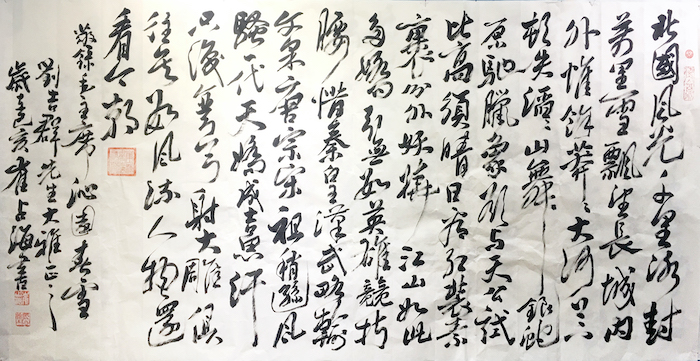 北國風光千里冰封
萬里雪飄望長城內
外惟餘莽々大河上下
頓失滔々山舞銀蛇
原馳臘象欲與天公試
比高須晴日看紅裝素
裹分外妖嬈江山如此
多嬌引無數英雄競折
腰惜秦皇漢武略輸
文采唐宗宋祖稍遜風
騷一代天驕成吉思汗
只識彎弓射大雕俱
往矣數風流人物還
看今朝
敬錄毛主席沁園春雪
劉吉群先生大雅正之
歲己亥崔占海書